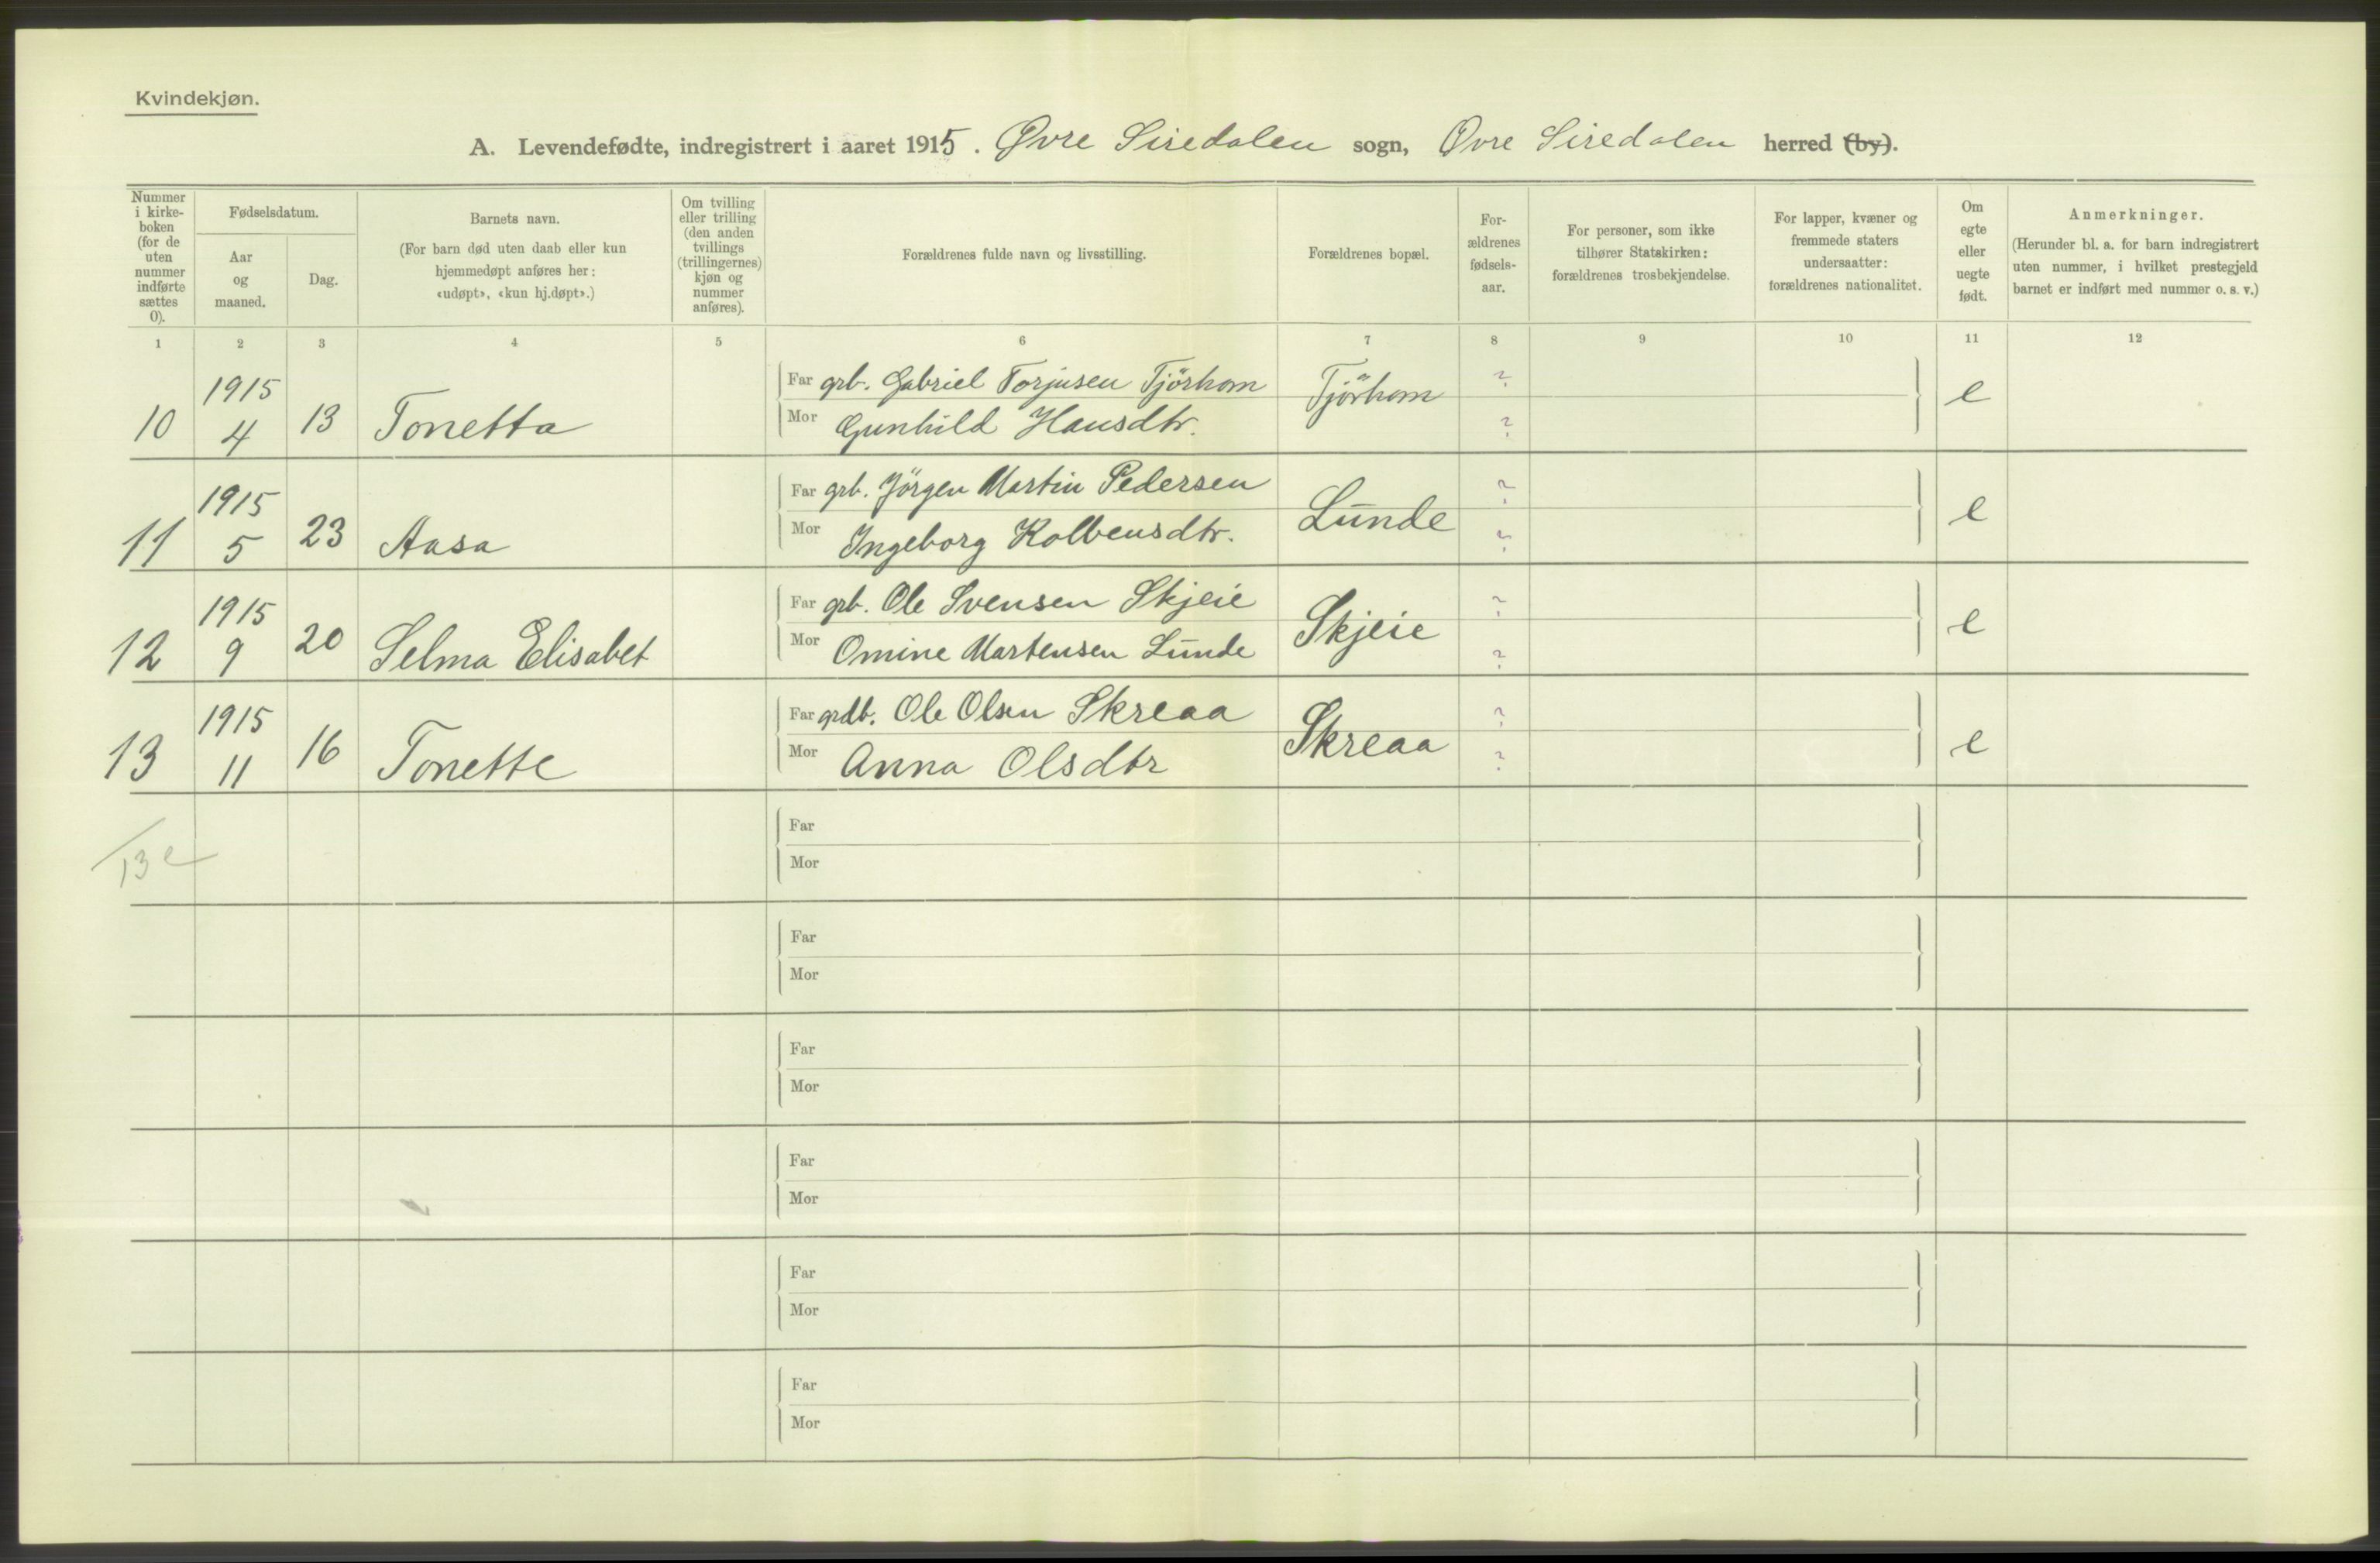 Kvindekjøn.
A. Levendefødte, indregistrert i aaret 1915. Øvre Siredalen sogn, Øvre Siredalen herred (by).
Nummer i kirke-boken (for de uten nummer indførte sættes 0).
Fødselsdatum.
Aar og maaned.
Dag.
Barnets navn.
(For barn død uten daab eller kun hjemmedøpt anføres her: «udøpt», «kun hj.døpt».)
Om tvilling eller trilling (den anden tvillings (trillingernes) kjøn og nummer anføres).
Forældrenes fulde navn og livsstilling.
Forældrenes bopæl.
For-ældrenes fødsels-aar.
For personer, som ikke tilhører Statskirken: forældrenes trosbekjendelse.
For lapper, kvæner og fremmede staters undersaatter: forældrenes nationalitet.
Om egte eller uegte født.
Anmerkninger.
(Herunder bl. a. for barn indregistrert uten nummer, i hvilket prestegjeld barnet er indført med nummer o. s. v.)
1 2 3 4 5 6 7 8 9 10 11 12
10 1915 4 13 Tonetta Far grb. Gabriel Torjusen Tjörhom Tjörhom ? e
Mor Gunhild Hansdtr. ?
11 1915 5 23 Aasa Far grb. Jörgen Martin Pedersen Lunde ? e
Mor Ingeborg Kolbensdtr. ?
12 1915 9 20 Selma Elisabet Far grb. Ole Svensen Skjeie Skjeie ? e
Mor Omine Martensen Lunde ?
13 1915 11 16 Tonette Far grdb. Ole Olsen Skreaa Skreaa ? e
Mor Anna Olsdtr ?
13 e
Far
Mor
Far
Mor
Far
Mor
Far
Mor
Far
Mor
Far
Mor